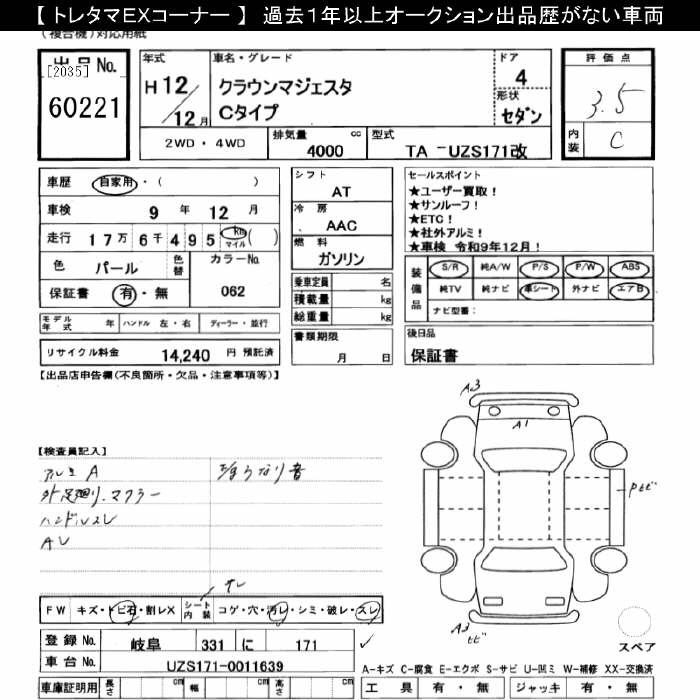 【 トレタマEXコーナー 】 過去1年以上オークション出品歴がない車両
(複合機)対応用紙
出品No.
[2035]
60221
年式
H 12/12月
車名・グレード
クラウンマジェスタ
Cタイプ
ドア
4
形状
セダン
評価点
3.5
内装
C
2WD・4WD
排気量 cc
4000
型式
TA －UZS171改
車歴 自家用・( )
車検 9年 12月
走行 17万 6千 495 km マイル ( )
色 パール 色替
カラーNo.
062
保証書 有・無
シフト
AT
冷房
AAC
燃料
ガソリン
乗車定員 名
積載量 kg
総重量 kg
セールスポイント
★ユーザー買取！
★サンルーフ！
★ETC！
★社外アルミ！
★車検 令和9年12月！
装備品
S/R 純A/W P/S P/W ABS
純TV 純ナビ 革シート 外ナビ エアB
ナビ型番：
モデル年式 年 ハンドル 左・右 ディーラー・並行
リサイクル料金 14,240 円 預託済
書類期限
月 日
後日品
保証書
【出品店申告欄(不良箇所・欠品・注意事項等)】
【検査員記入】
A
外 足廻り、マフラー
ハンドルスレ
音
A3
A1
Pヒビ
A3
ヒビ
スレ
FW キズ・トビ石・割レX
シート内装 コゲ・穴・汚レ・シミ・破レ・スレ
登録No. 岐阜 331 に 171
車台No. UZS171-0011639
スペア
A-キズ C-腐食 E-エクボ S-サビ U-凹ミ W-補修 XX-交換済
車庫証明用 長さ cm 幅 cm 高さ cm
工具 有・無 ジャッキ 有・無